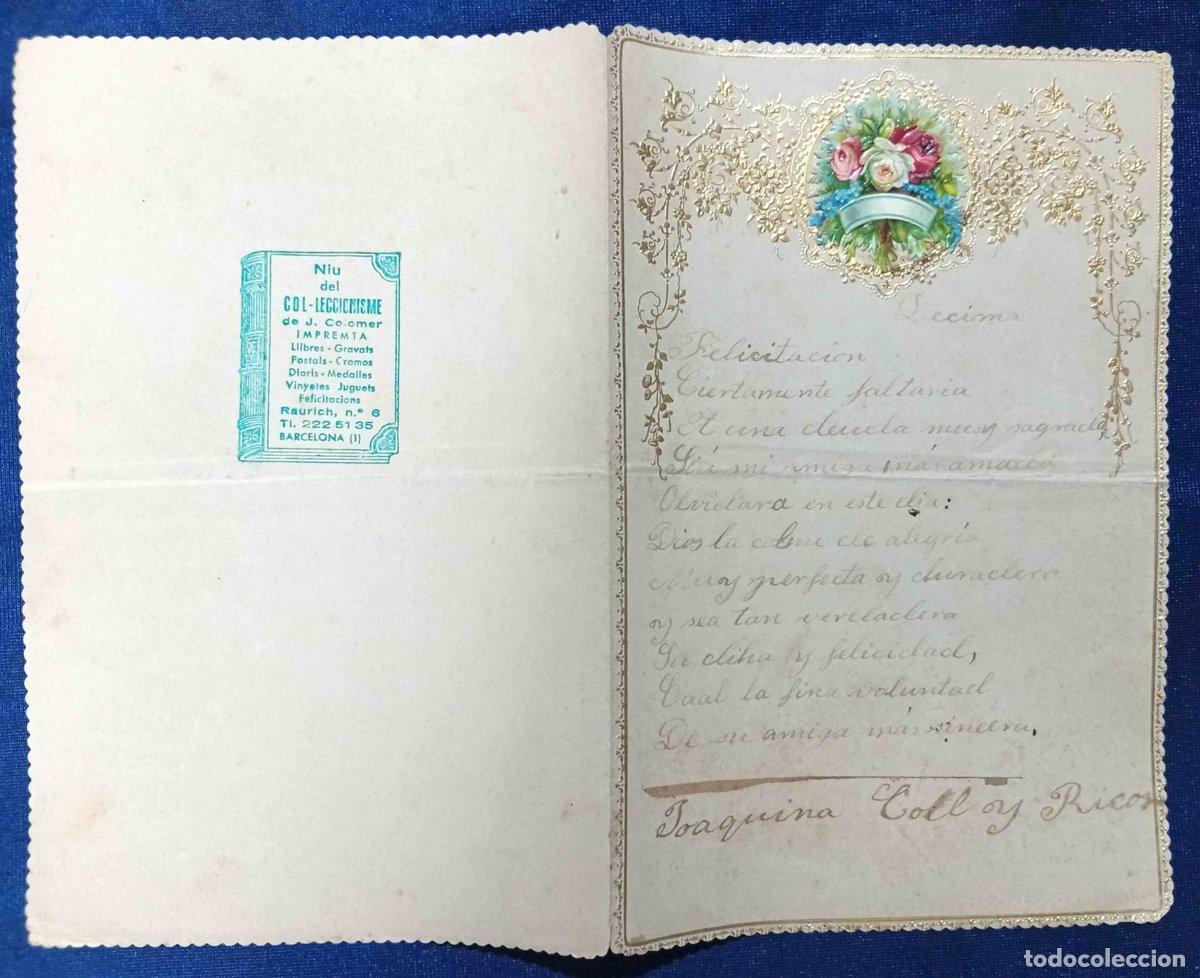 Niu
del
COL-LECCIONISME
de J. Colomer
IMPREMTA
Llibres - Gravats
Postals - Cromos
Diaris - Medalles
Vinyetes Juguets
Felicitacions
Raurich, n.º 6
Tl. 222 51 35
BARCELONA (1)
Decima
Felicitacion
Ciertamente faltaria
A una deuda muy sagrada,
Si á mi amiga más amada
Olvidara en este dia:
Dios la colme de alegría
Muy perfecta y duradera
y sea tan verdadera
Su diha y felicidad,
Cual la fina voluntad
De su amiga más sincera.
Joaquina Coll y Ricor
todocoleccion